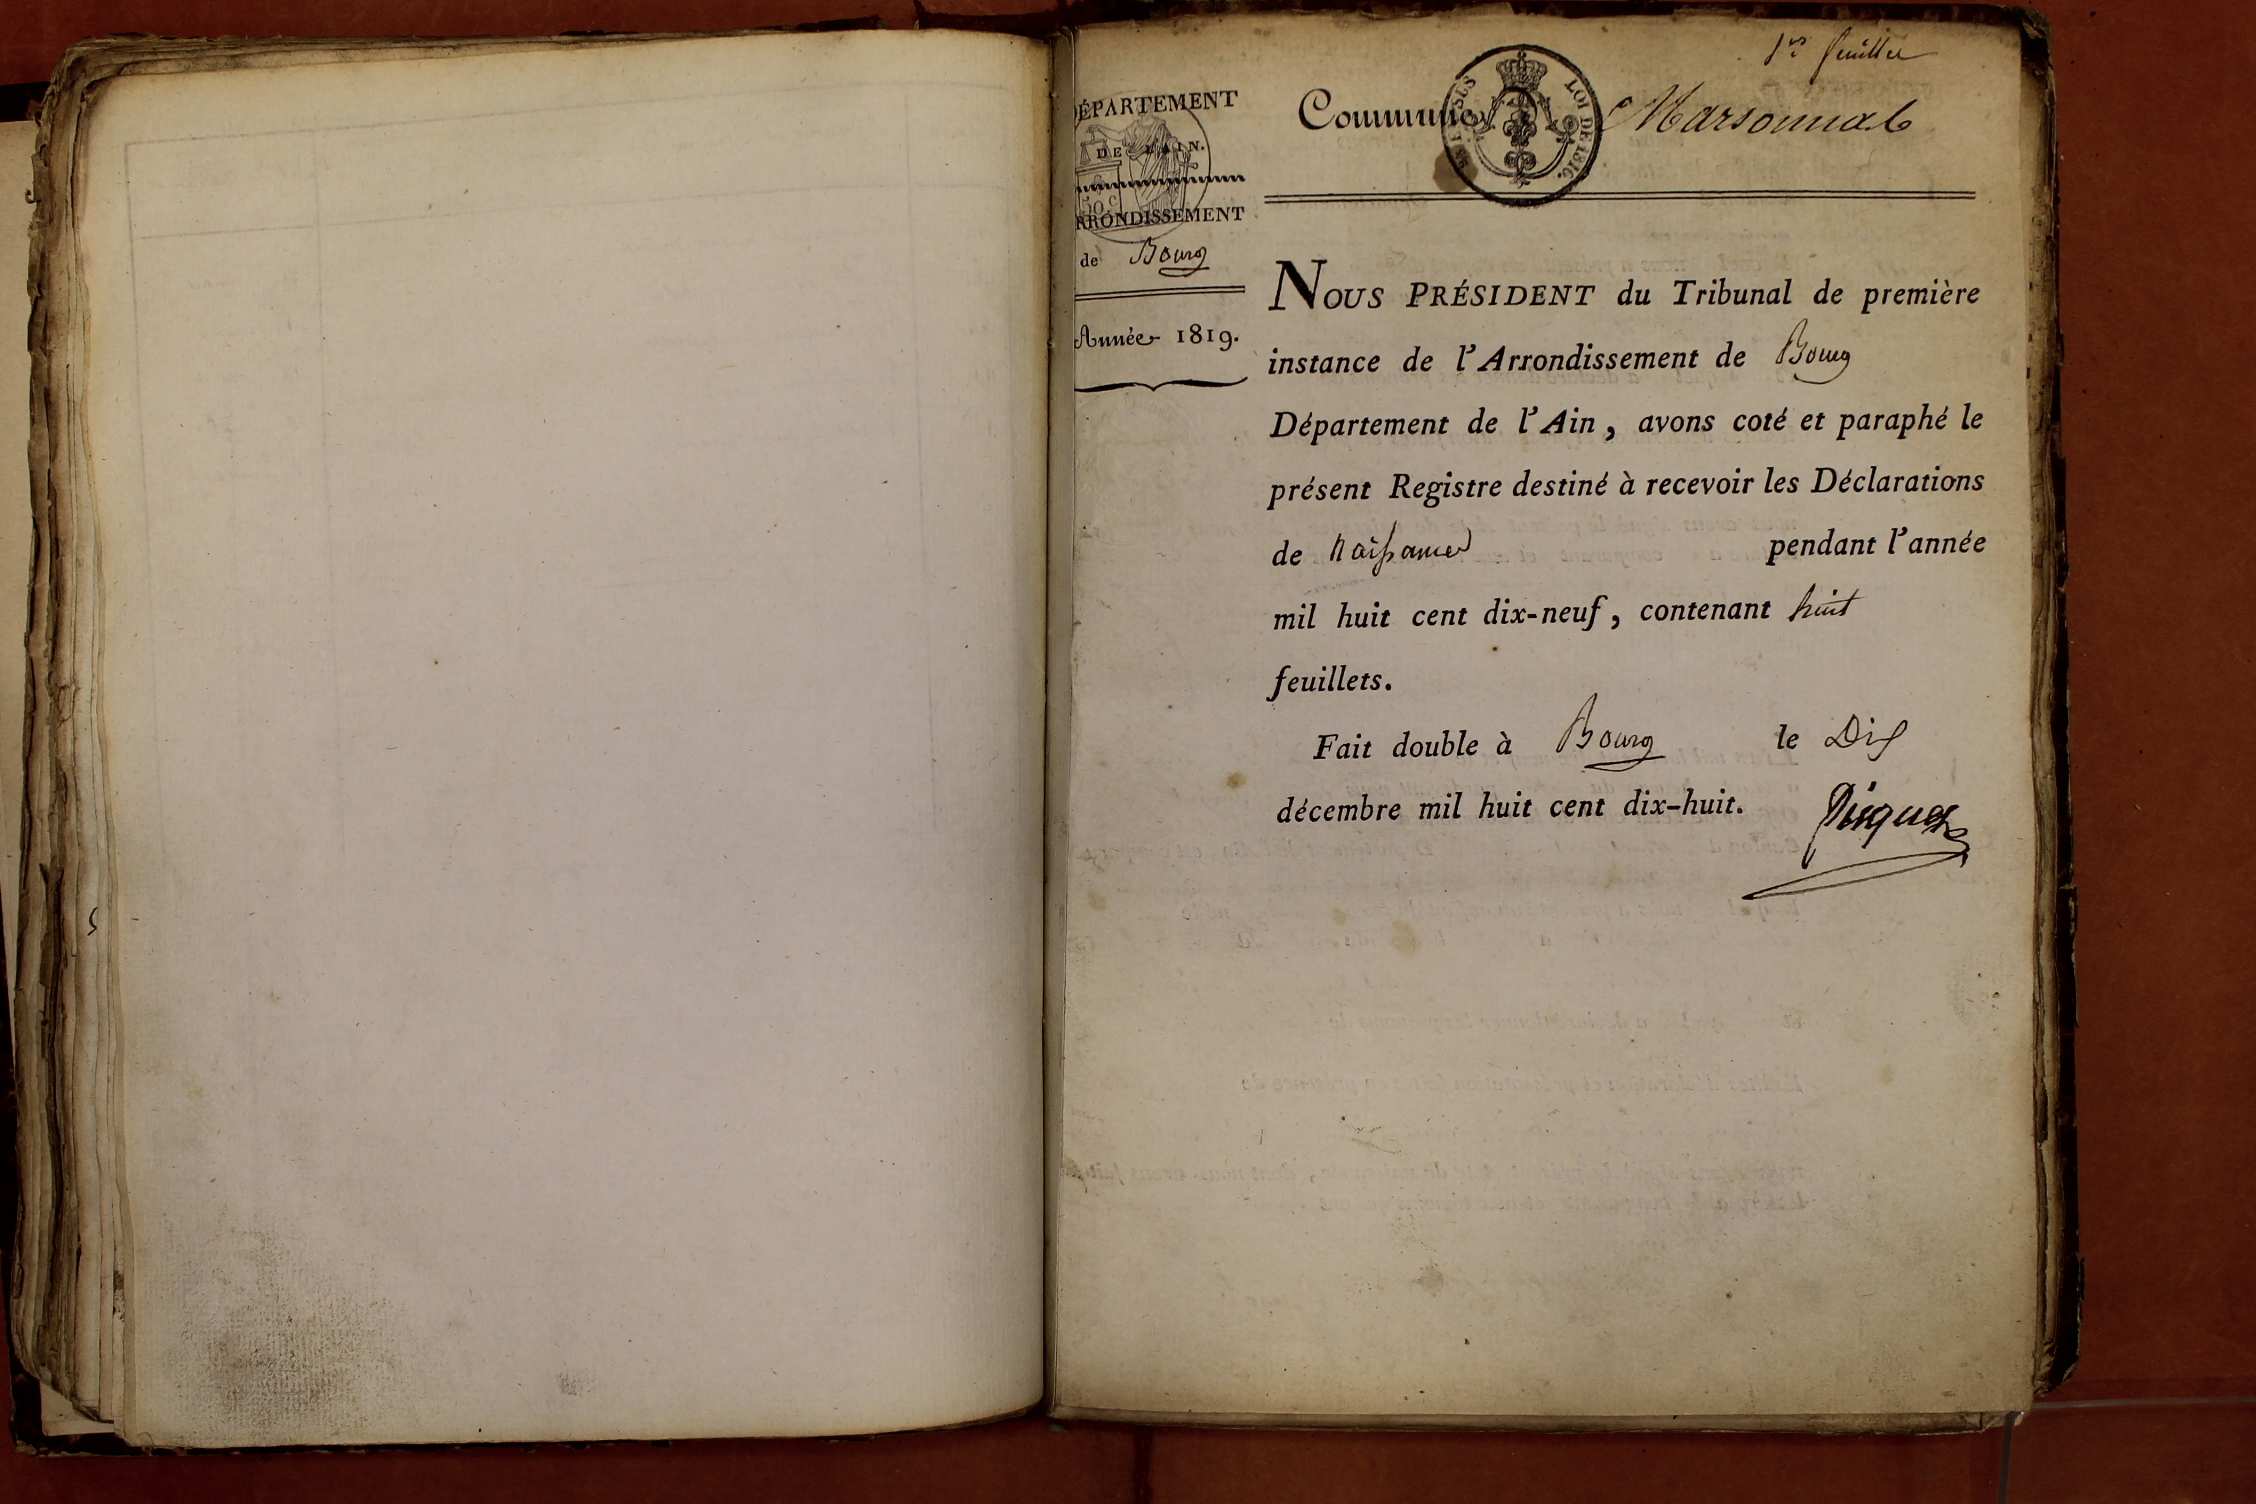 1er feuillet
DÉPARTEMENT
DE L'AIN.
50 c
RRONDISSEMENT
de Bourg
Année 1819.
Commune Marsonnat
LOI DE 1816.
NOUS PRÉSIDENT du Tribunal de première
instance de l'Arrondissement de Bourg
Département de l'Ain, avons coté et paraphé le
présent Registre destiné à recevoir les Déclarations
de naissances pendant l'année
mil huit cent dix-neuf, contenant huit
feuillets.
Fait double à Bourg le Dix
décembre mil huit cent dix-huit.